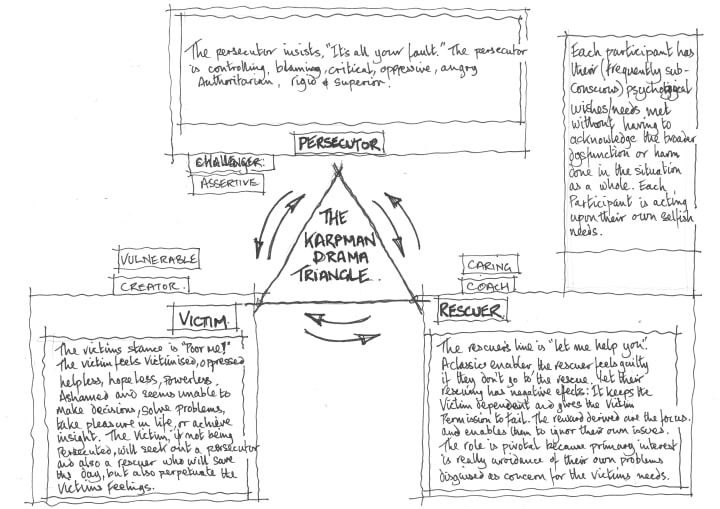 The persecutor insists, "It's all your fault." The persecutor
is controlling, blaming, critical, oppressive, angry
Authoritarian, rigid & Superior.
PERSECUTOR
CHALLENGER.
ASSERTIVE
Each participant has
their (frequently sub-
conscious) psychological
wishes/needs met
without having to
acknowledge the broader
dysfunction or harm
done in the situation
as a whole. Each
Participant is acting
upon their own selfish
needs.
THE
KARPMAN
DRAMA
TRIANGLE.
VULNERABLE
CREATOR.
VICTIM.
The victims stance is "Poor me!"
The victim feels Victimised, oppressed
helpless, hopeless, powerless.
Ashamed and seems unable to
make decisions, solve problems,
take pleasure in life, or achieve
insight. The Victim, if not being
Persecuted, will seek out a persecutor
and also a rescuer who will save
the day, but also perpetuate the
Victims feelings.
CARING
COACH
RESCUER
The rescuers line is "let me help you".
A classic enabler the rescuer feels guilty
if they don't go to the rescue. Yet their
rescuing has negative effects: It keeps the
Victim dependent and gives the Victim
Permission to fail. The reward derived are the focus.
and enables them to ignor their own issues.
The role is pivotal because primary interest
is really avoidance of their own problems
disguised as concern for the victims needs.